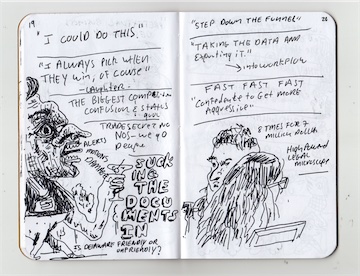 19
"I COULD DO THIS"
"I ALWAYS PICK WHEN
THEY WIN, OF COURSE"
- LAUGHTER -
THE BIGGEST
CONFUSION & STATUS
TRADE SECRET NO
NOS - WE GO
ALERTS
SUCK
ING
THE
DOCU
MENTS
IN
IS DELAWARE FRIENDLY OR
UNFRIENDLY?
20
"STEP DOWN THE FUNNEL"
"TAKING THE DATA AND
EXPORTING IT."
→ into workflow
FAST FAST FAST
to GET MORE
AGGRESSIVE"
8 TIMES FOR 7
MILLION DOLLARS
High Powered
LEGAL
MICROSCOPE